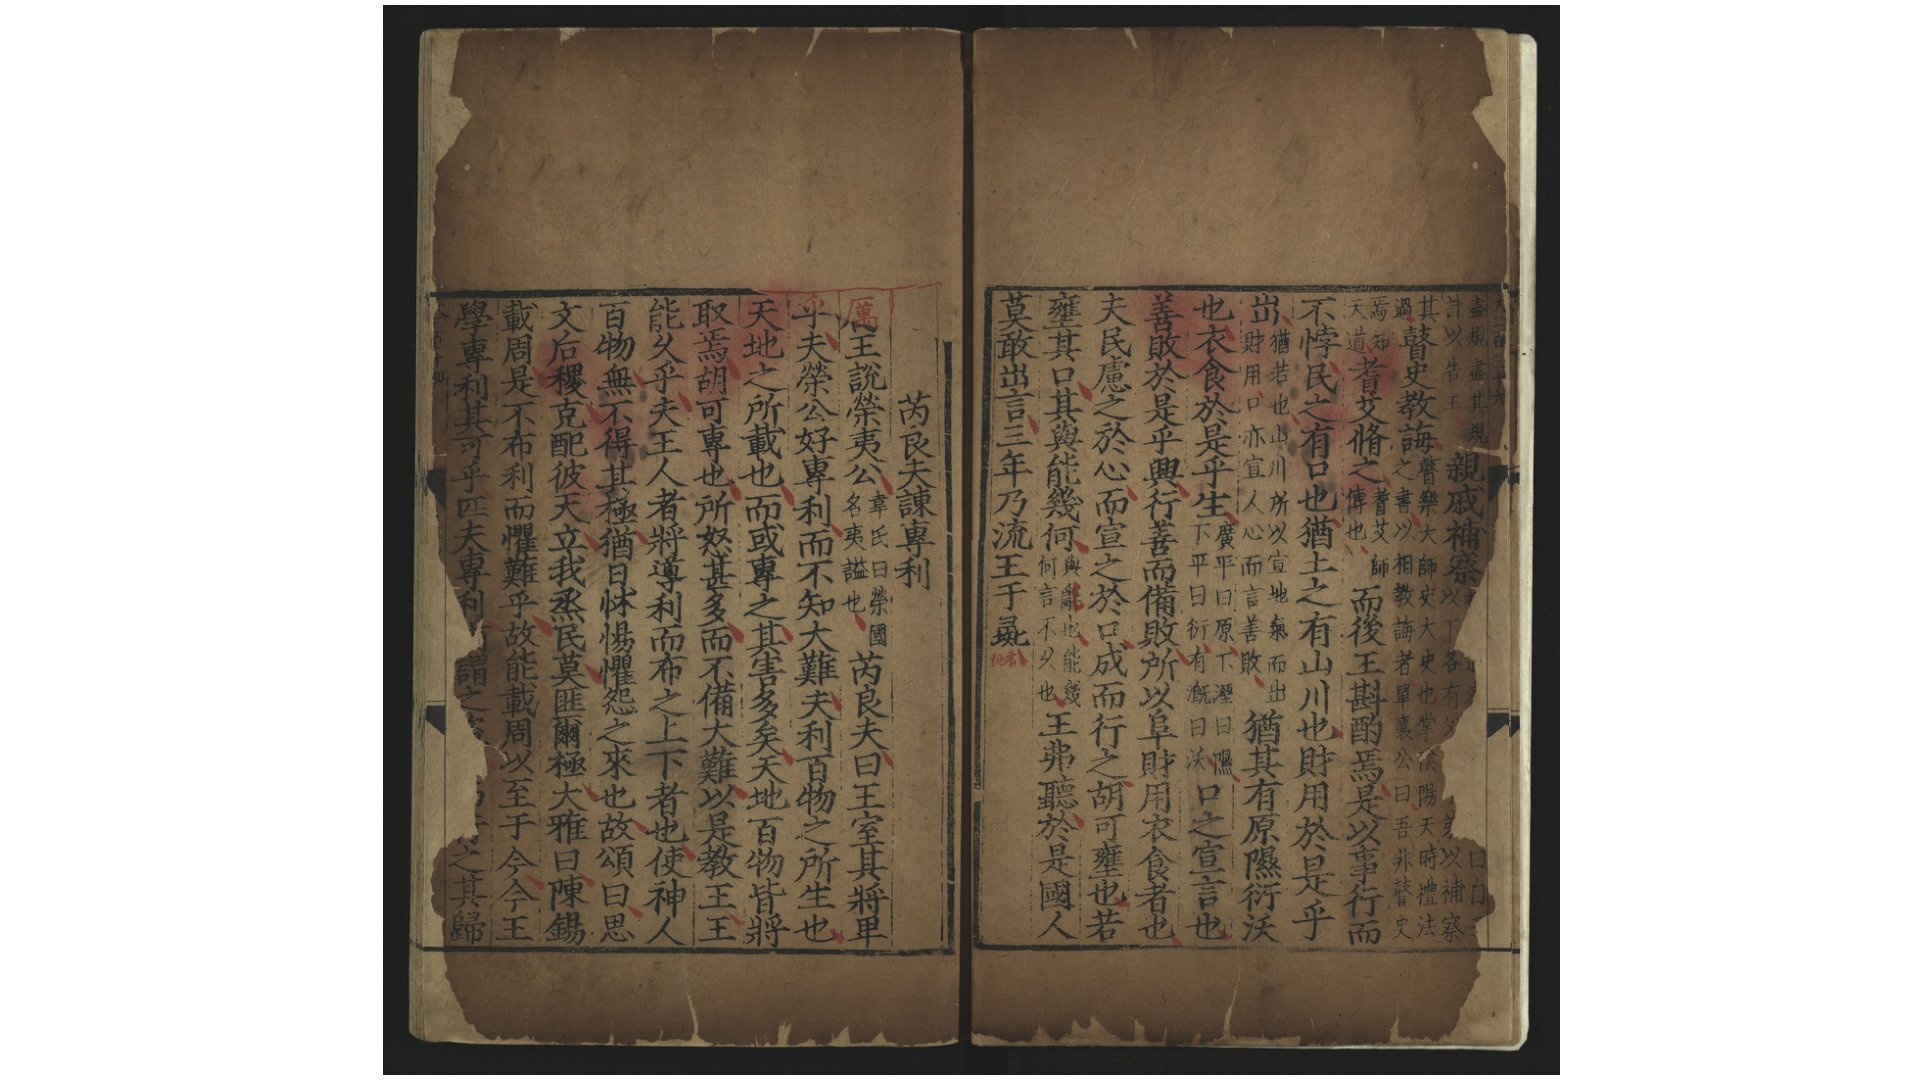 盡規盡其規計以告王親戚補察
其過瞽史教誨瞽樂大師史大史也掌陰陽天時禮法之書以相教誨者單襄公曰吾非瞽史
焉知天道耆艾脩之耆艾師傅也而後王斟酌焉是以事行而
不悖民之有口也猶土之有山川也財用於是乎
出猶若也山川所以宣地氣而出財用口亦宣人心而言善敗猶其有原隰衍沃
也衣食於是乎生廣平曰原下溼曰隰下平曰衍有溉曰沃口之宣言也
善敗於是乎興行善而備敗所以阜財用衣食者也
夫民慮之於心而宣之於口成而行之胡可壅也若
壅其口其與能幾何與辭也能幾何言不久也王弗聽於是國人
莫敢出言三年乃流王于彘
芮良夫諫專利
厲王說榮夷公韋氏曰榮國名夷謚也芮良夫曰王室其將卑
乎夫榮公好專利而不知大難夫利百物之所生也
天地之所載也而或專之其害多矣天地百物皆將
取焉胡可專也所怒甚多而不備大難以是教王王
能久乎夫王人者將導利而布之上下者也使神人
百物無不得其極猶日怵惕懼怨之來也故頌曰思
文后稷克配彼天立我烝民莫匪爾極大雅曰陳錫
載周是不布利而懼難乎故能載周以至于今今王
學專利其可乎匹夫專利猶謂之行之其歸